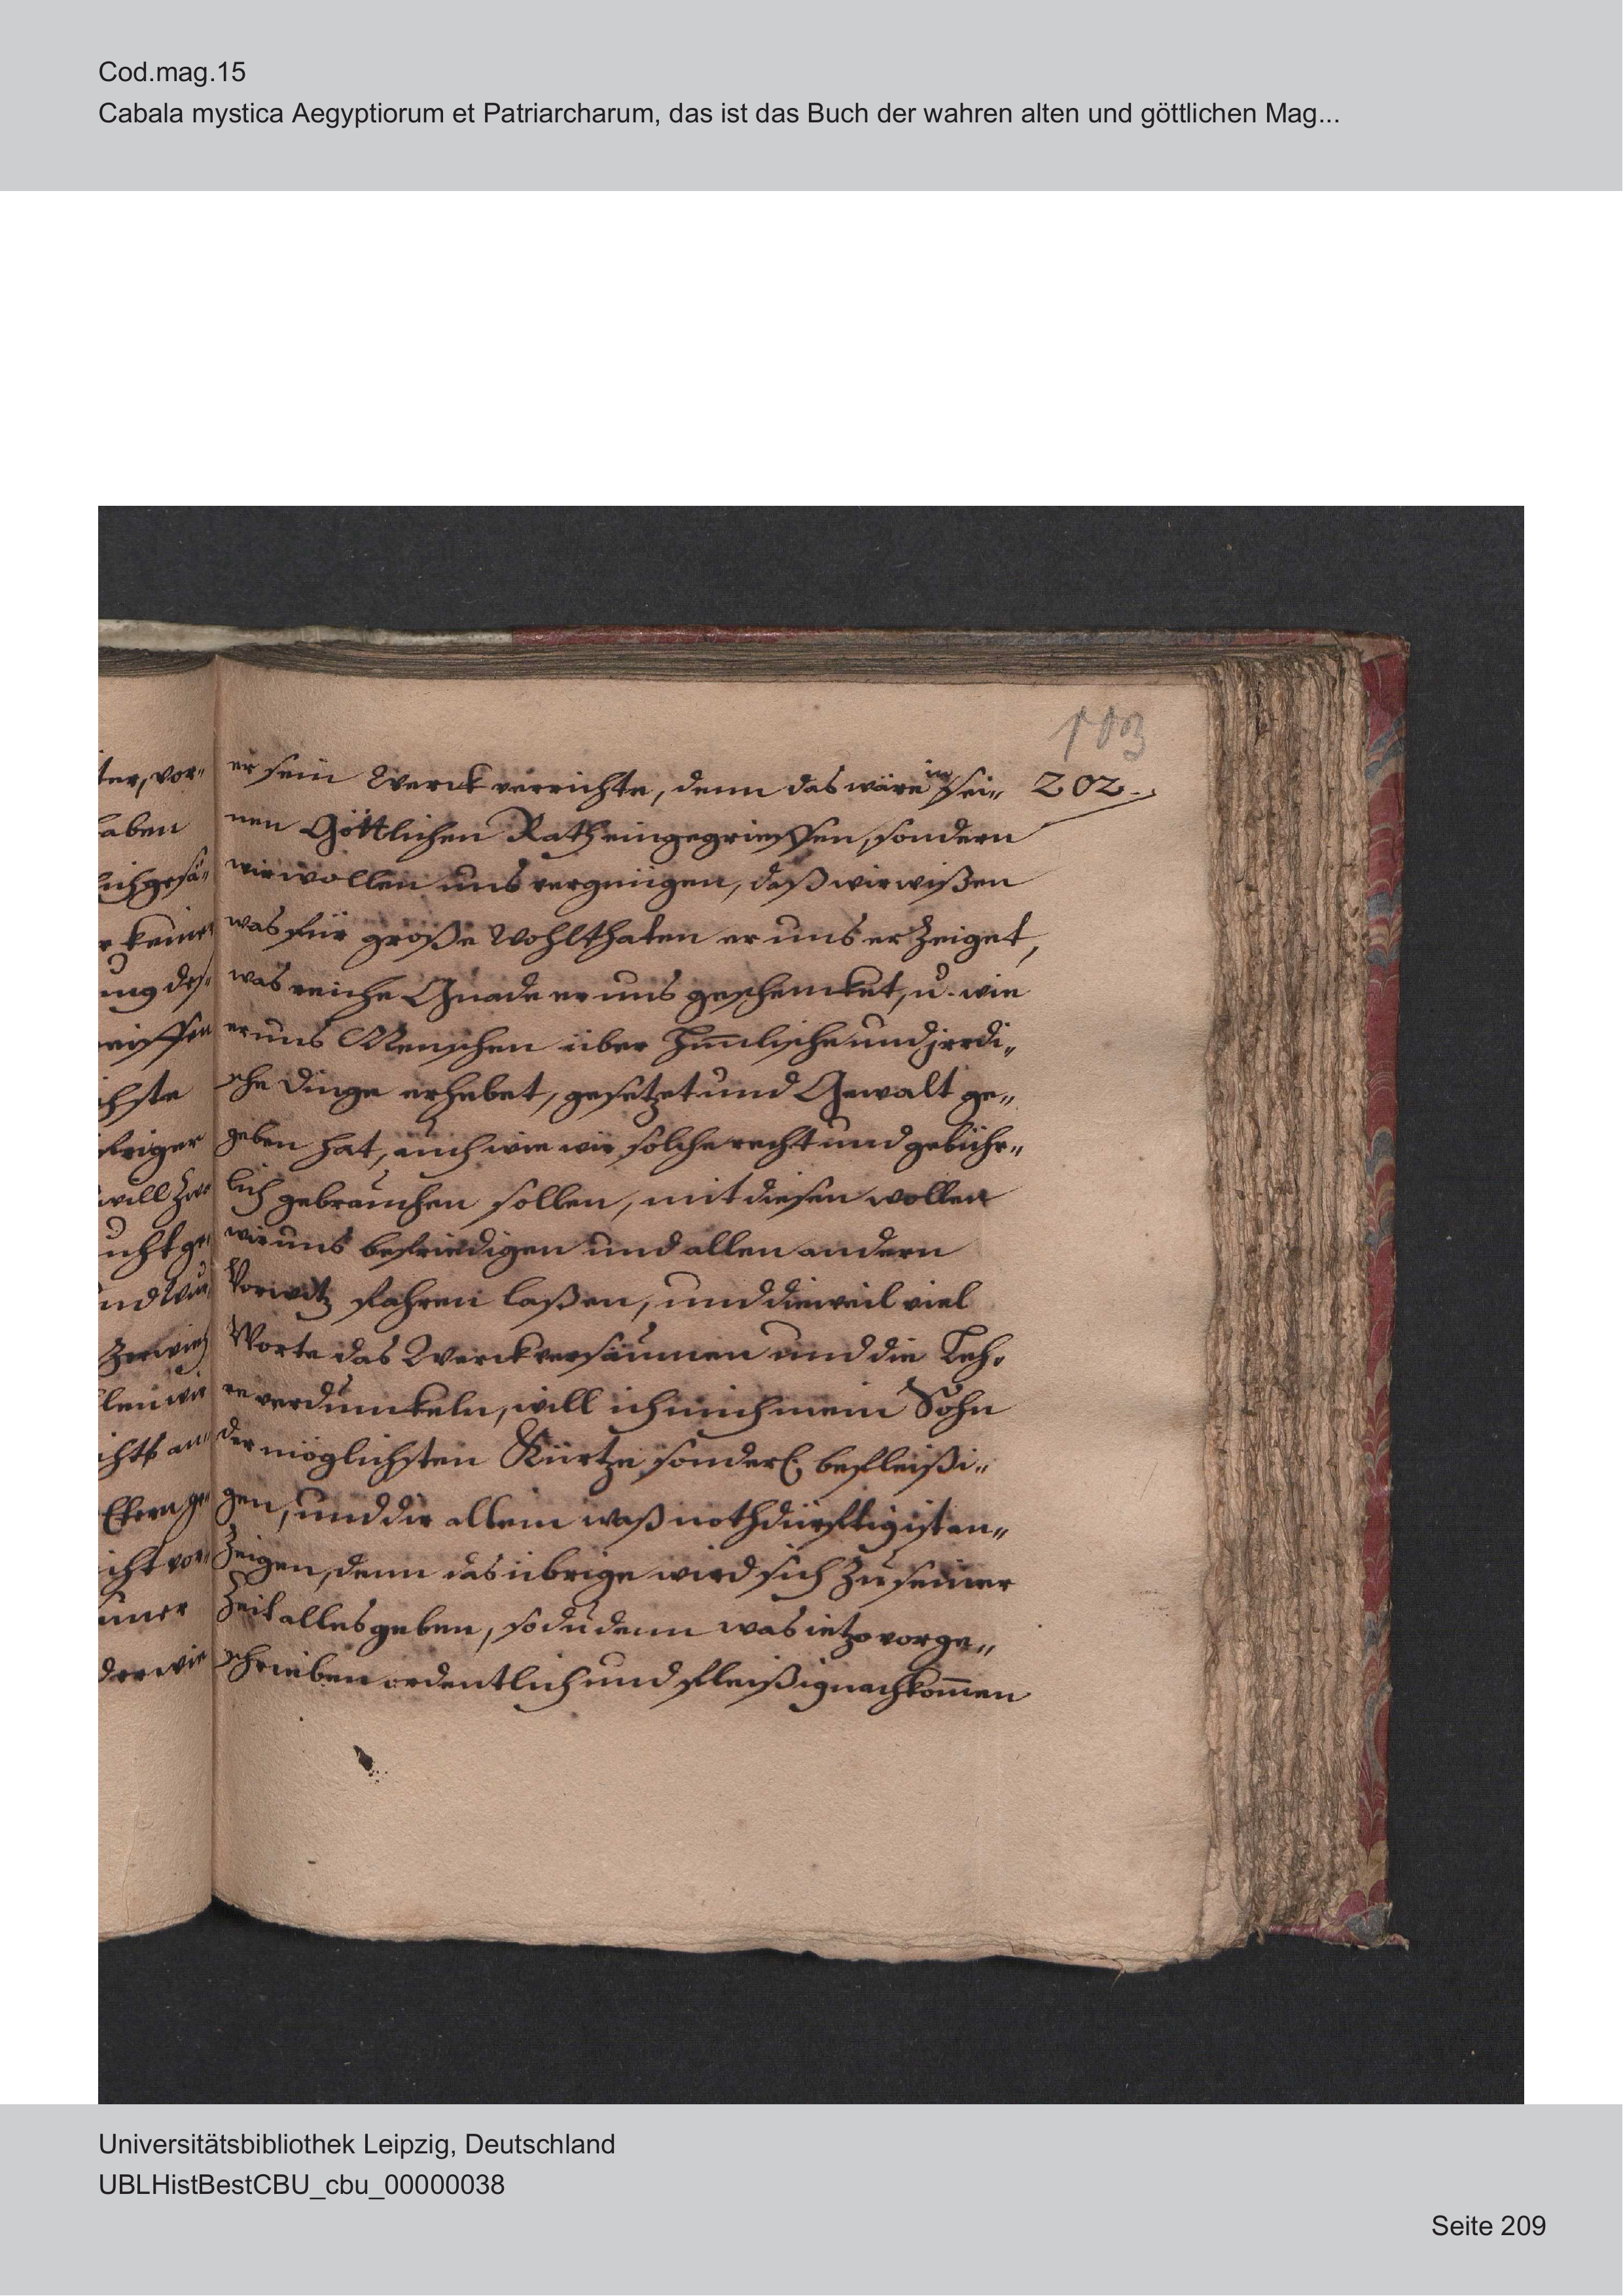 Cod.mag.15
Cabala mystica Aegyptiorum et Patriarcharum, das ist das Buch der wahren alten und göttlichen Mag...
103
202.
er sein Werck verrichte, denn das wäre in sei„
nen Göttlichen Rath eingegrieffen, sondern
wir wollen uns vergnügen, daß wir wißen
was für große Wohlthaten er uns erzeiget,
was reiche Gnade er uns geschencket, u. wie
er uns Menschen über him̄lische und jrrdi„
sche Dinge erhebet, gesetzet und Gewalt ge„
geben hat, auch wie wir solche recht und gebühr„
lich gebrauchen sollen, mit diesen wollen
wir uns befriedigen und allen andern
Vorwitz fahren laßen, und dieweil viel
Worte das Werck versäumen und die Leh„
re verdunckeln, will ich mich mein Sohn
der möglichsten Kürtze sonderl. befleißi„
gen, und dir allein waß nothdürfftig ist an„
zeigen, denn das übrige wird sich zu seiner
Zeit alles geben, so du denn was ietzo vorge„
schrieben ordentlich und fleißig nachkom̄en
ter, vor„
haben
lich gesä„
r keiner
ung des„
chste
will
und
len wir
icht vor„
einer
der wie
Universitätsbibliothek Leipzig, Deutschland
UBLHistBestCBU_cbu_00000038
Seite 209